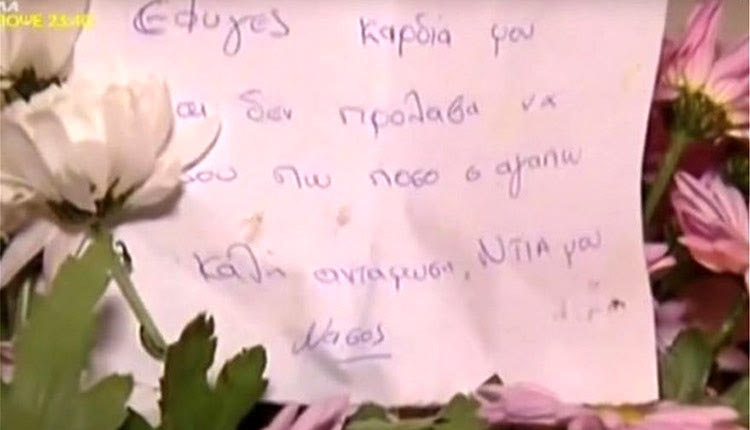 ΛΑ
ΠΟΨΕ 23:40
Εφυγες καρδιά μου
αι δεν προλαβα να
σου πω ποσο σ αγαπω
Καλή ανταμωση, ΝΤΙΑ μου
Νασος